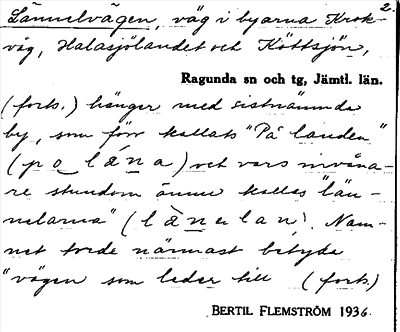 2.
Lännelvägen, väg i byarna Krok-
våg, Halasjölandet och Köttsjön,
Ragunda sn och tg, Jämtl. län.
(forts.) hänger med sistnämnda
by, som förr kallats "På landen"
och vars invåna-
re stundom ännu kallas "län-
nelarna" Nam-
net torde närmast betyda
"vägen som leder till (forts.)
BERTIL FLEMSTRÖM 1936